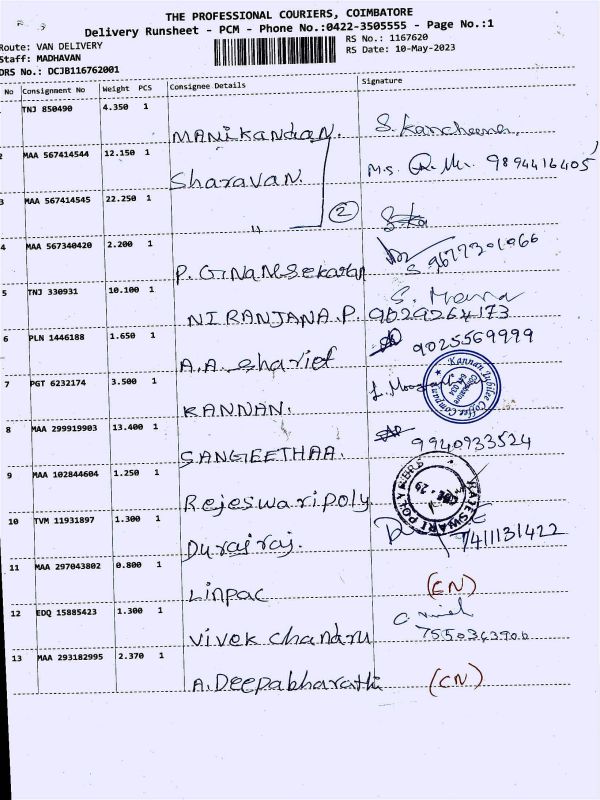 THE PROFESSIONAL COURIERS, COIMBATORE
Delivery Runsheet - PCM - Phone No.:0422-3505555 - Page No.:1
Route: VAN DELIVERY
RS No.: 1167620
Staff: MADHAVAN
RS Date: 10-May-2023
DRS No.: DCJB116762001
No Consignment No Weight PCS Consignee Details Signature
TNJ 850490 4.350 1
MANiKANDAN. S. Kancheena,
2 MAA 567414544 12.150 1
Sharavan. M.s. 9894416405
3 MAA 567414545 22.250 1
〃 2
4 MAA 567340420 2.200 1
P. GNANASekaran 9677301966
5 TNJ 330931 10.100 1
NIRANJANA.P. 9029264173
6 PLN 1446188 1.650 1
A.A. sharief 9025569999
7 PGT 6232174 3.500 1
KANNAN. Kannan Jubilee Coffee Company
8 MAA 299919903 13.400 1
SANGEETHAA. 9940933524
9 MAA 102844604 1.250 1
Rejeswaripoly RAJESWARI POLYMERS
10 TVM 11931897 1.300 1
Durajraj. 7411131422
11 MAA 297043802 0.800 1
Linpac (CN)
12 EDQ 15885423 1.300 1
Vivek Chandru 7550363900
13 MAA 293182995 2.370 1
A.Deepabharathi (CN)